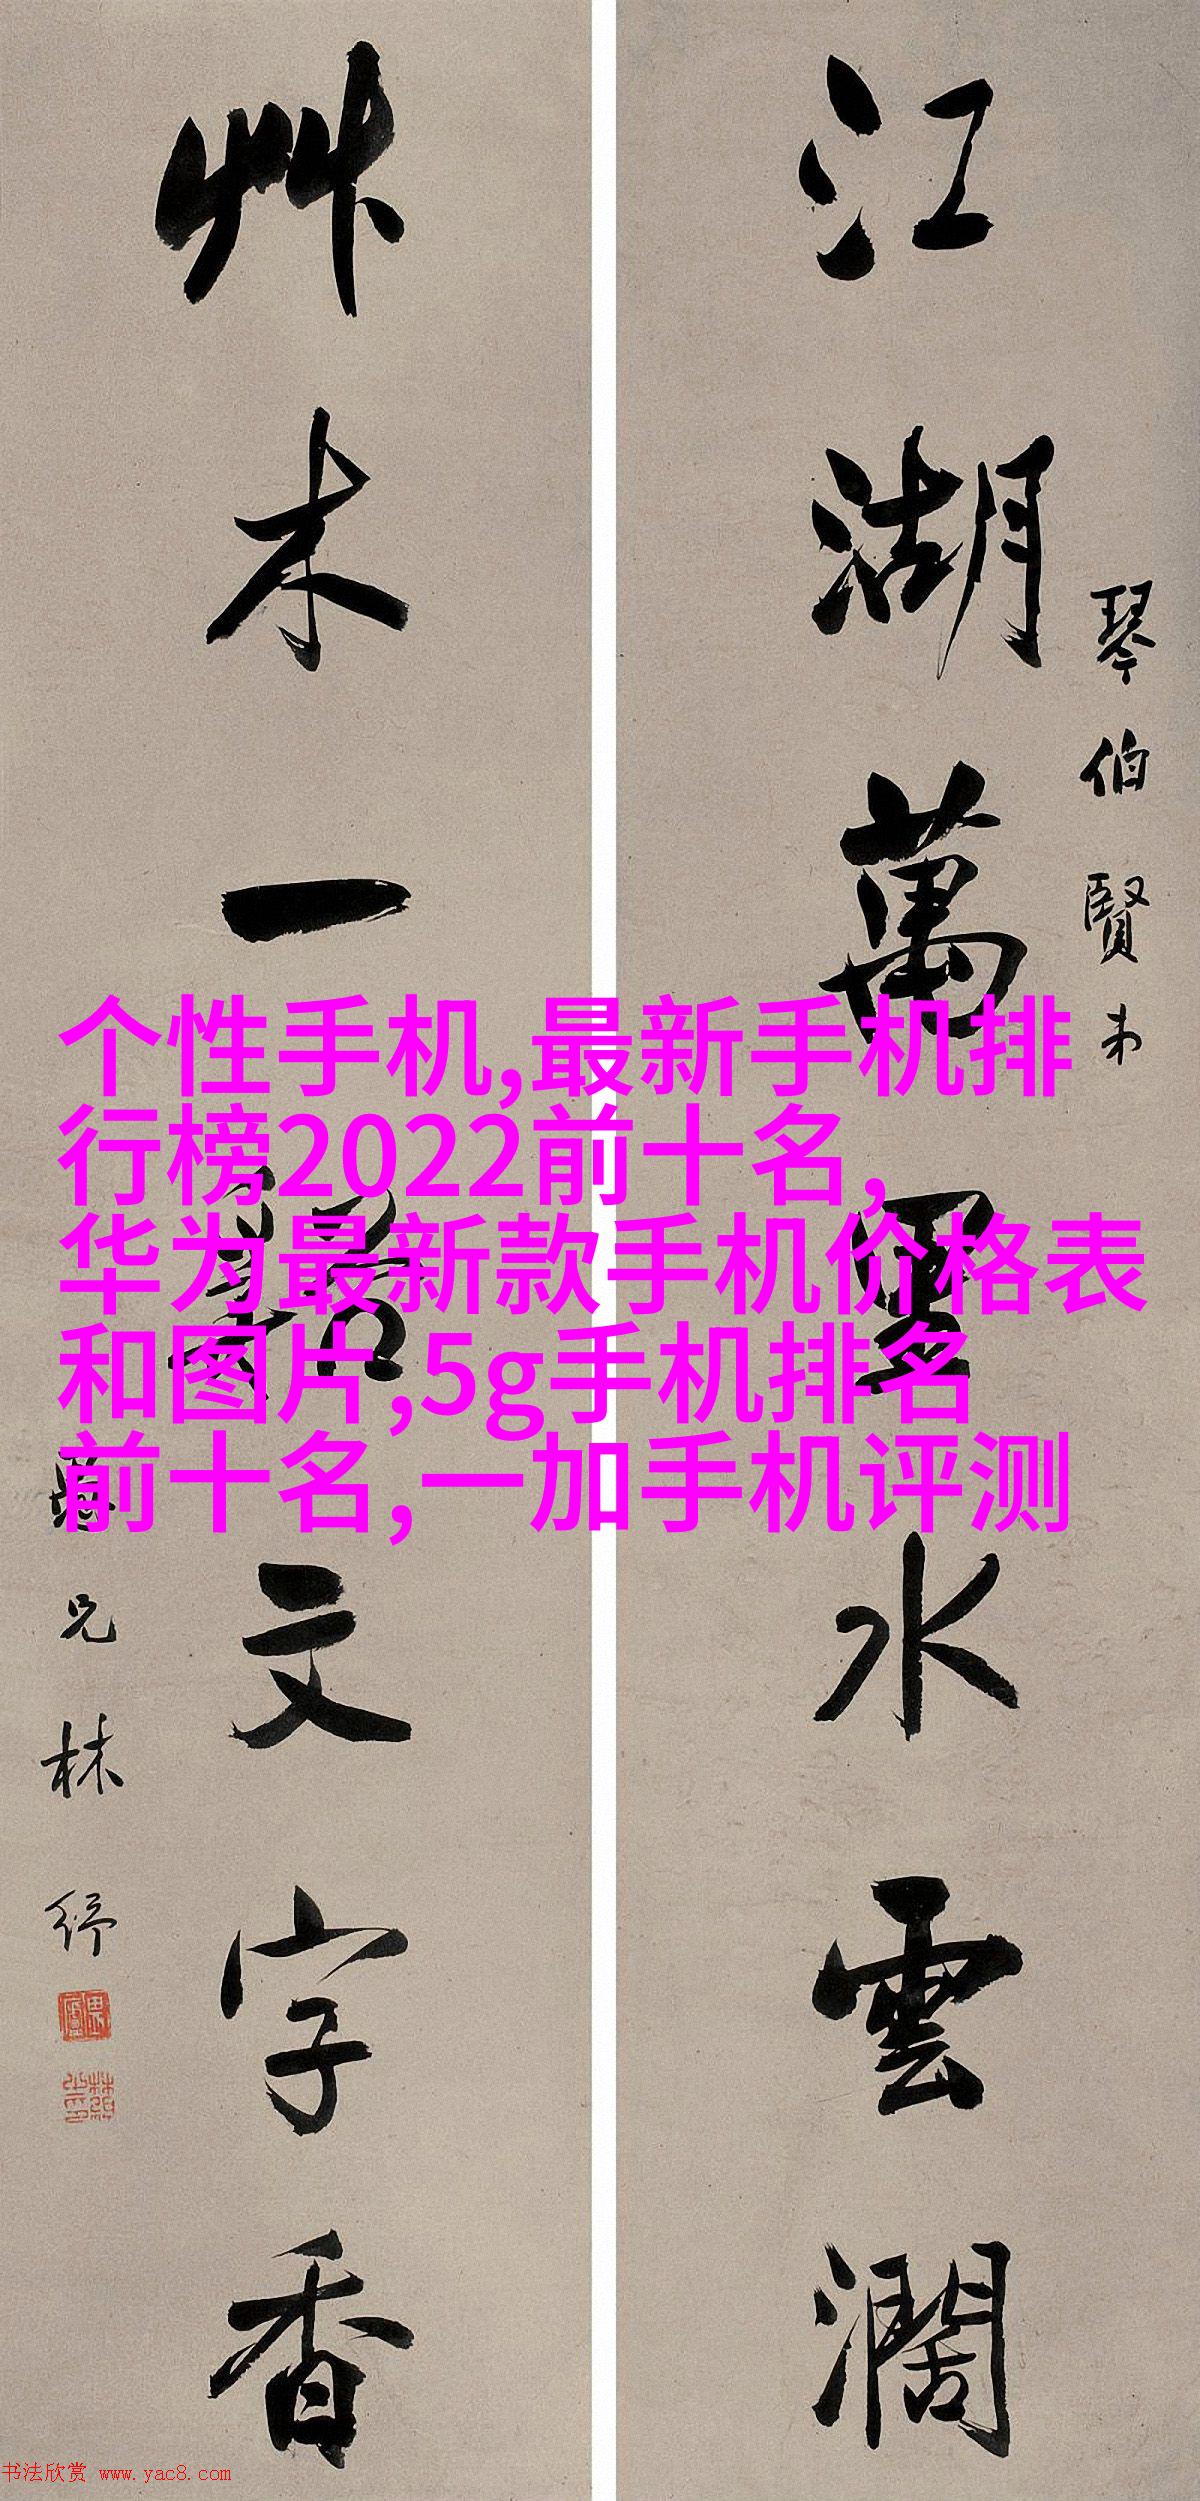 琴伯賢弟
江湖萬里水雲闊
艸木一谿文字香
愚兄林紓
畏廬
个性手机,最新手机排
行榜2022前十名,
华为最新款手机价格表
和图片,5g手机排名
前十名,一加手机评测
书法欣赏 www.yac8.com